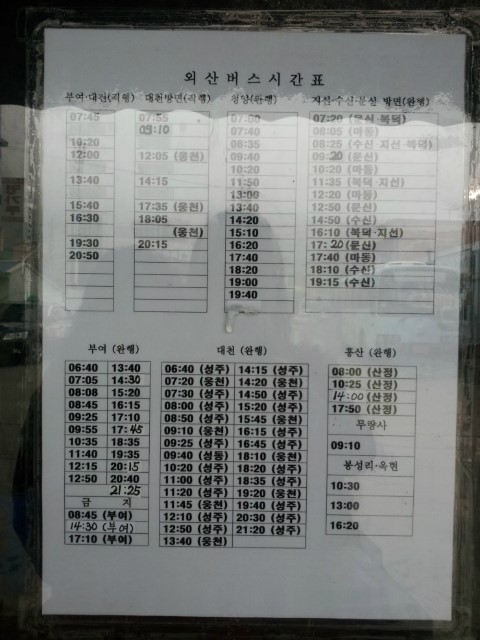 외산버스시간표
부여·대전(직행) 대천방면(직행) 청양(완행) 지선·수신·문신 방면(완행)
07:45 07:55 07:00 07:20 (문신·복덕)
09:10 07:40 08:05 (마동)
10:20 08:35 08:25 (수신·지선·복덕)
12:00 12:05 (웅천) 09:40 09:20 (문신)
10:20 10:20 (마동)
13:40 14:15 11:50 11:35 (복덕·지선)
13:00 12:20 (마동)
15:40 17:35 (웅천) 13:40 12:50 (문신)
16:30 18:05 14:20 14:50 (수신)
(웅천) 15:10 16:10 (복덕·지선)
19:30 20:15 16:20 17:20 (문신)
20:50 17:40 17:40 (마동)
18:20 18:10 (수신)
19:00 19:15 (수신)
19:40
부여 (완행)
06:40 13:40
07:05 14:30
08:08 15:20
08:45 16:15
09:25 17:10
09:55 17:45
10:35 18:35
11:40 19:35
12:15 20:15
12:50 20:40
21:25
금 지
08:45 (부여)
14:30 (부여)
17:10 (부여)
대천 (완행)
06:40 (성주) 14:15 (성주)
07:20 (웅천) 14:20 (웅천)
07:30 (성주) 14:50 (성주)
08:00 (성주) 15:20 (성주)
08:50 (성주) 15:45 (웅천)
09:10 (웅천) 16:15 (성주)
09:25 (성주) 16:45 (성주)
09:40 (성동) 18:10 (웅천)
10:20 (성주) 18:20 (성주)
11:00 (웅천) 18:35 (성주)
11:20 (성주) 19:20 (웅천)
11:45 (웅천) 19:40 (성주)
12:10 (성주) 20:30 (성주)
12:50 (성주) 21:20 (성주)
13:40 (웅천)
홍산 (완행)
08:00 (산정)
10:25 (산정)
14:00 (산정)
17:50 (산정)
무량사
09:10
봉성리·옥현
10:30
13:00
16:20